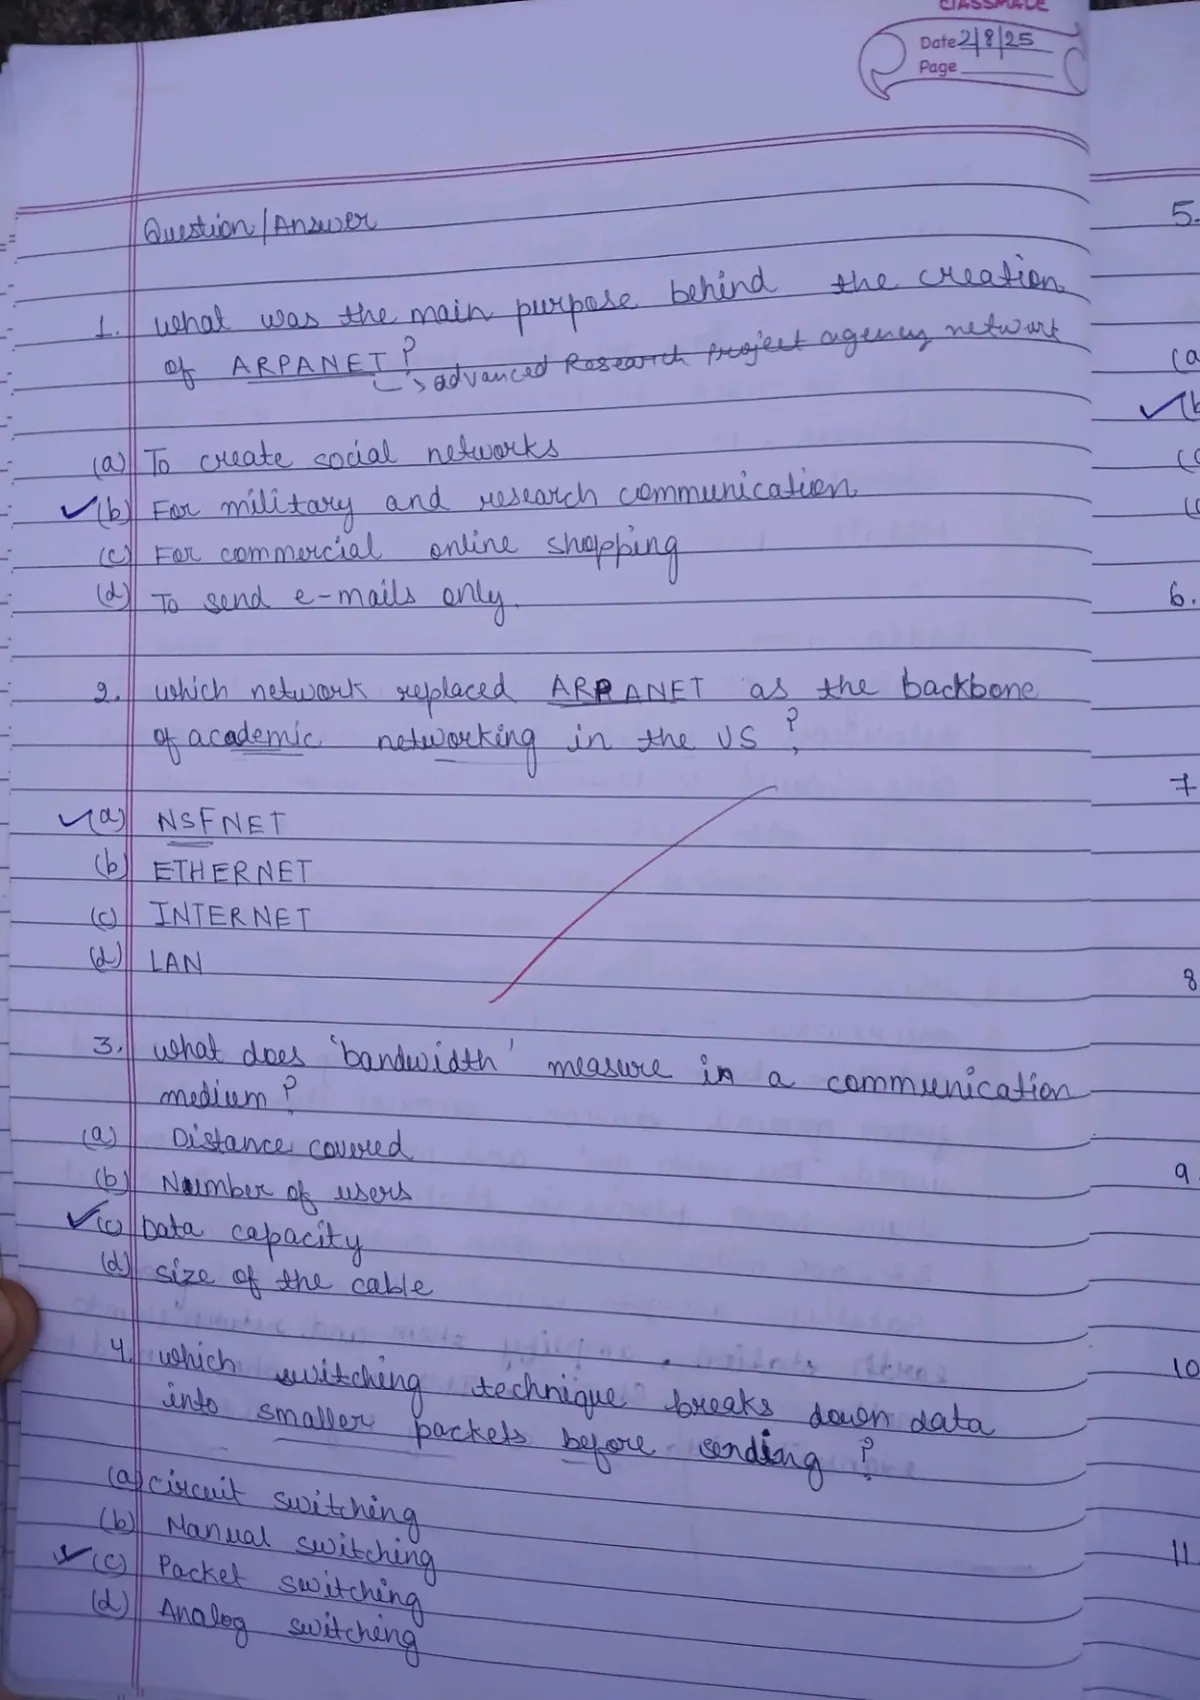 classmate
Date 2/8/25
Page
Question/Answer
1. what was the main purpose behind the creation
of ARPANET?
↳ advanced Research project agency netwurk
(a) To create social networks
✓(b) For military and research communication
(c) For commercial online shopping
(d) To send e-mails only.
2. which network replaced ARPANET as the backbone
of academic networking in the US?
✓(a) NSFNET
(b) ETHERNET
(c) INTERNET
(d) LAN
3. what does 'bandwidth' measure in a communication
medium?
(a) Distance covered
(b) Number of users
✓(c) Data capacity
(d) size of the cable
4. which switching technique breaks down data
into smaller packets before sending?
(a) circuit switching
(b) Manual switching
✓(c) Packet switching
(d) Analog switching
5.
(a
✓(b
(c
6.
7
8
9.
10
11